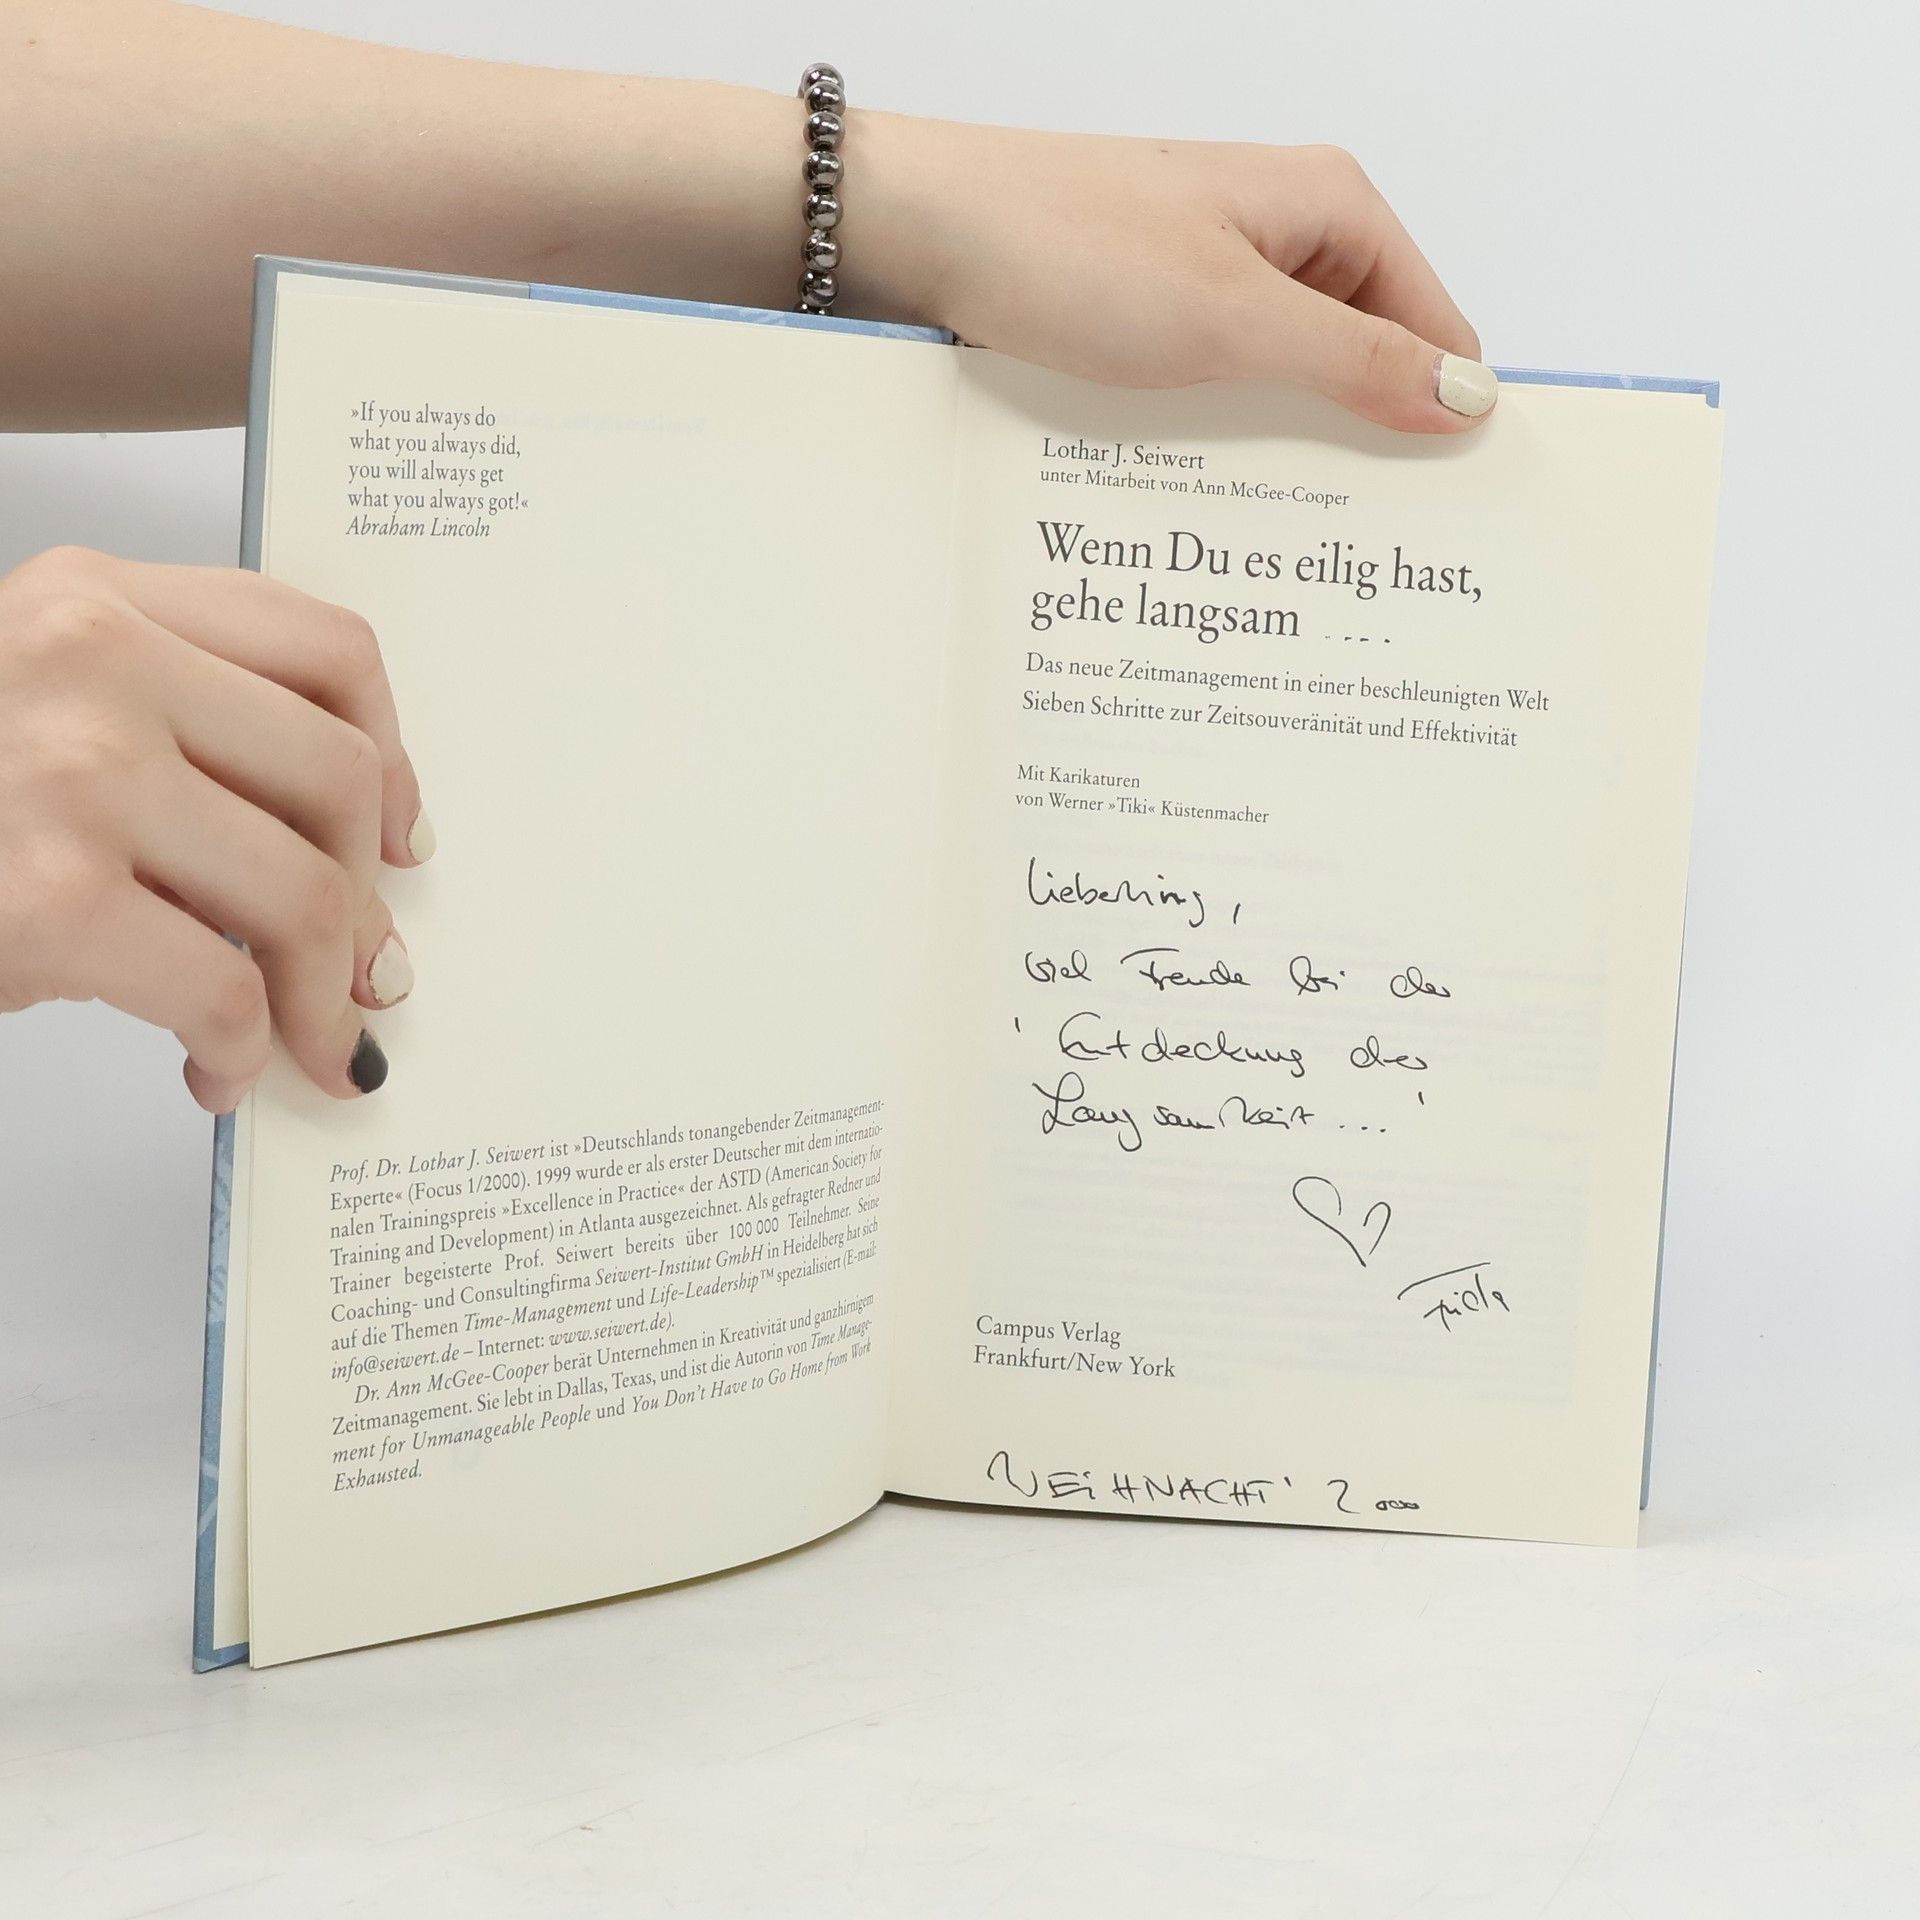 »If you always do
what you always did,
you will always get
what you always got!«
Abraham Lincoln
Prof. Dr. Lothar J. Seiwert ist »Deutschlands tonangebender Zeitmanagement-
Experte« (Focus 1/2000). 1999 wurde er als erster Deutscher mit dem internatio-
nalen Trainingspreis »Excellence in Practice« der ASTD (American Society for
Training and Development) in Atlanta ausgezeichnet. Als gefragter Redner und
Trainer begeisterte Prof. Seiwert bereits über 100 000 Teilnehmer. Seine
Coaching- und Consultingfirma Seiwert-Institut GmbH in Heidelberg hat sich
auf die Themen Time-Management und Life-Leadership™ spezialisiert (E-mail:
info@seiwert.de – Internet: www.seiwert.de).
Dr. Ann McGee-Cooper berät Unternehmen in Kreativität und ganzhirnigem
Zeitmanagement. Sie lebt in Dallas, Texas, und ist die Autorin von Time Manage-
ment for Unmanageable People und You Don't Have to Go Home from Work
Exhausted.
Lothar J. Seiwert
unter Mitarbeit von Ann McGee-Cooper
Wenn Du es eilig hast,
gehe langsam ....
Das neue Zeitmanagement in einer beschleunigten Welt
Sieben Schritte zur Zeitsouveränität und Effektivität
Mit Karikaturen
von Werner »Tiki« Küstenmacher
Liebering,
viel Freude bei der
'Entdeckung der
Langsamkeit ...'
Campus Verlag
Frankfurt/New York
WEIHNACHT' 2000